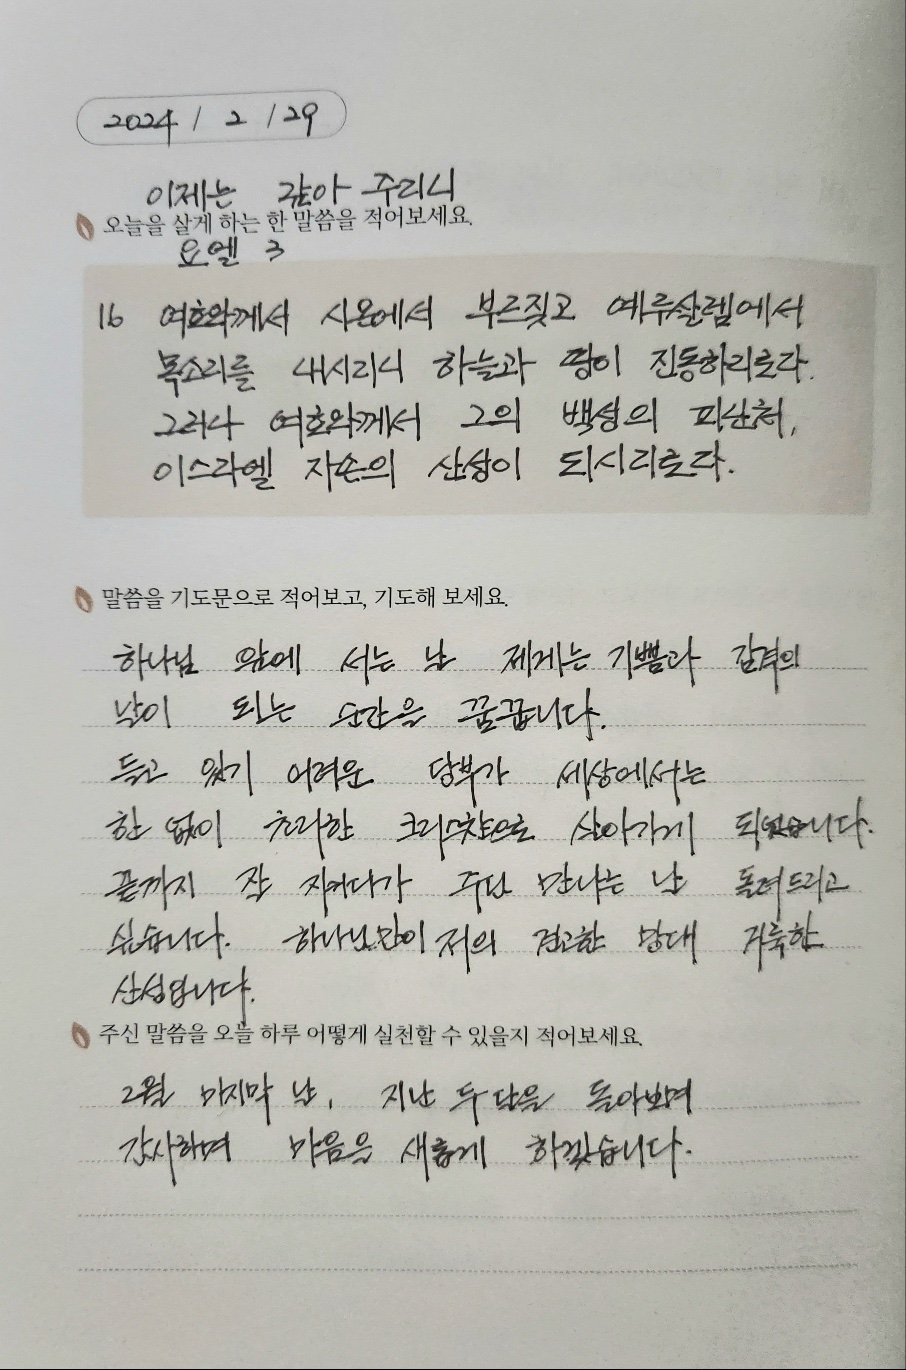 2024 / 2 / 29
이제는 갚아 주리니
오늘을 살게 하는 한 말씀을 적어보세요.
요엘 3
16 여호와께서 시온에서 부르짖고 예루살렘에서
목소리를 내시리니 하늘과 땅이 진동하리로다.
그러나 여호와께서 그의 백성의 피난처,
이스라엘 자손의 산성이 되시리로다.
말씀을 기도문으로 적어보고, 기도해 보세요.
하나님 앞에 서는 날 제게는 기쁨과 감격의
날이 되는 순간을 꿈꿉니다.
듣고 있기 어려운 당부가 세상에서는
한 없이 초라한 크리스찬으로 살아가게 되었습니다.
끝까지 잘 지키다가 주단 만나는 날 돌려드리고
싶습니다. 하나님만이 저의 견고한 망대 거룩한
산성입니다.
주신 말씀을 오늘 하루 어떻게 실천할 수 있을지 적어보세요.
2월 마지막 날, 지난 두 달을 돌아보며
감사하며 마음을 새롭게 하겠습니다.